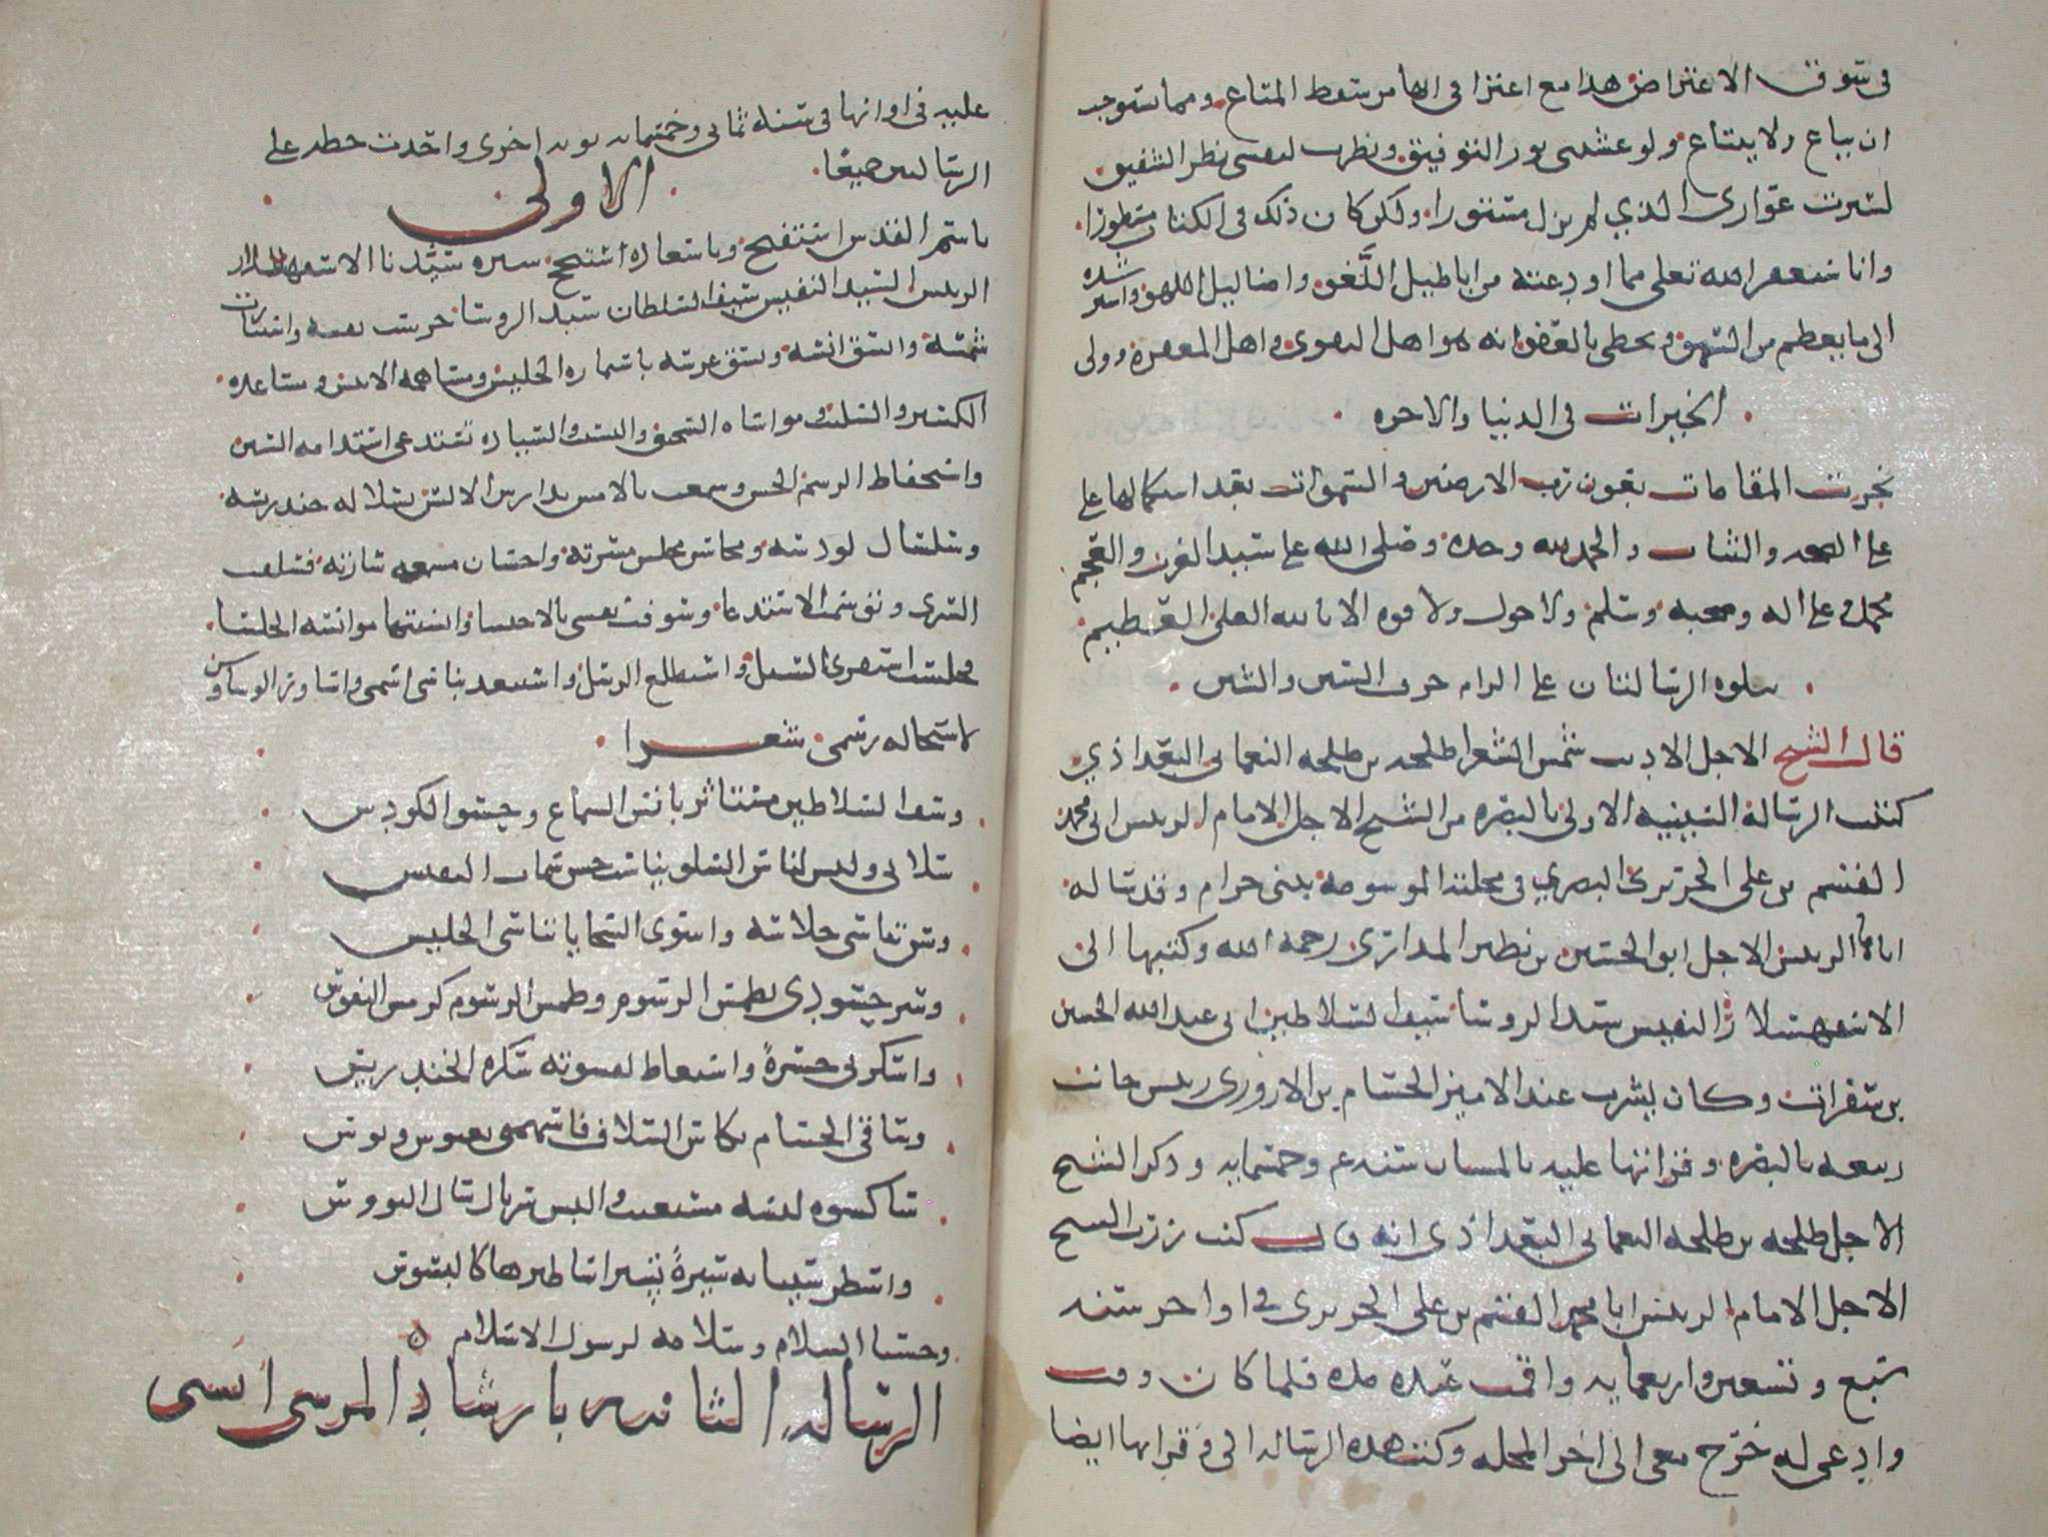 في سوق الاعتراض هذا مع اعترافي انها من سقط المتاع ومما يستوجب
ان يباع ولا يبتاع ولو غشيني نور التوفيق ونظرت لنفسي نظر الشفيق
لسترت عواري الذي لم يزل مستورا ولكن كان ذلك في الكتاب مسطورا
وانا استغفر الله تعلى مما اودعته من اباطيل اللغو واضاليل اللهو واسترشده
الى ما يعصم من السهو ويحظي بالعفو انه هو اهل التقوى واهل المغفرة وولي
الخيرات في الدنيا والاخره
نجزت المقامات بعون رب الارضين والسموات بعد استكمالها على
على العجم والشان والحمد لله وحده وصلى الله على سيد العرب والعجم
محمد وعلى اله وصحبه وسلم ولا حول ولا قوه الا بالله العلي العظيم
يتلوه الرسالتان على الزام حرف السين والشين
قال الشيخ الاجل الاديب شمس الشعرا طلحه بن طلحه النعماني البغداذي
كتبت الرسالة السينيه الاولى بالبصره من الشيخ الاجل الامام الرييس ابي محمد
القسم بن علي الحريري البصري في محلته الموسومة ببني حرام وقد ساله
اياها الرييس الاجل ابو الحسين بن نطير المداري رحمه الله وكتبها الى
الاسفهسلار النفيس سيد الروسا سيف السلاطين ابي عبد الله الحسين
بن سفرات وكان يشرب عند الامير الحسام بن الاروري رييس جانب
ربيعه بالبصره وقراتها عليه بالمسان سنه وخمسمايه وذكر الشيخ
الاجل طلحه بن طلحه النعماني البغداذي انه قال كنت زرت الشيخ
الاجل الامام الرييس ابا محمد القسم بن علي الحريري في اواخر سنه
سبع وتسعين واربعمايه واقمت عنده مده فلما كان وقت
وادعي له خرج معي الى اخر المحله وكتب هذه الرساله الي وقراتها ايضا
عليه في اوانها في سنه ثماني وخمسمايه نوبه اخرى واخذت خطه على
الرسالتين جميعا
الاولى
باسم القدوس استفتح وباسعاده استنجح سيره سيدنا الاسفهسلار
الرييس السيد النفيس سيف السلطان سيد الروسا حرست نفسه واستنارت
شمسه واتسق انسه وبسق غرسه باستماره الجليس ومساهمه الانيس ومساعده
الكسير والسليب ومواساه السحيق والنسيب والسياده تستدعي استدامه السنن
واستحفاظ الرسم الحسن وسمعت بالامس تدارس الالسن سلاله خندريسه
وسلسال كووسه ومحاسن مجلس مسرته واحسان مسمعه سازته فتسلفت
السرى وتوسمت الاستدعا وسوفت نفسي بالاحتسا وانستها موانسه الجلسا
فجلست استقرى السبل واستطلع الرسل واستبعد تناسي اسمي واساور الوساوس
لاستحاله رسمي شعرا
وسيف السلاطين مستاثر بانس السماع وحسو الكووس
سلاني وليس لباس السلو يناسب حسن سمات النفيس
وسن تناسي جلاسه واسوى السجايا تناسي الجليس
وسر حسودي بطمس الرسوم وطمس الرسوم كرمس النفوس
واسكرني حسرةً واستعاض لقسوته سكره الخندريس
وساقي الحسام بكاس السلاف فاسهمني بعبوس وبوس
ساكسوه لبسه مستعتب والبس سربال سال يووس
واسطر سيناته سيرةً تسير اساطيرها كالبسوس
وحسبنا السلام وسلامه لرسول الاسلام
الرساله الثانيه بارشاد المرسي انسي